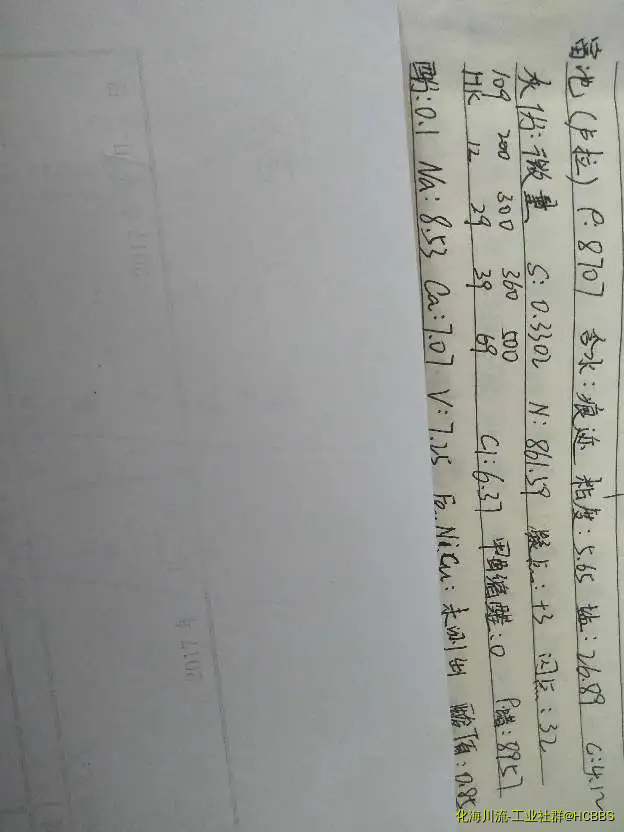 雷池(卢拉) ρ:8707 含水:痕迹 粘度:5.65 盐:26.89 C:4.12
灰份:微量 S:0.3302 N:861.59 凝点:+3 闪点:32
109 200 300 360 500
HK 12 29 39 69 Cl:6.37 甲由缩醛:0 ρ腊:8957
酚:0.1 Na:8.53 Ca:7.07 V:7.25 Fe.Ni.Cu:未测出 酸值:0.85
化海川流-工业社群@HCBBS